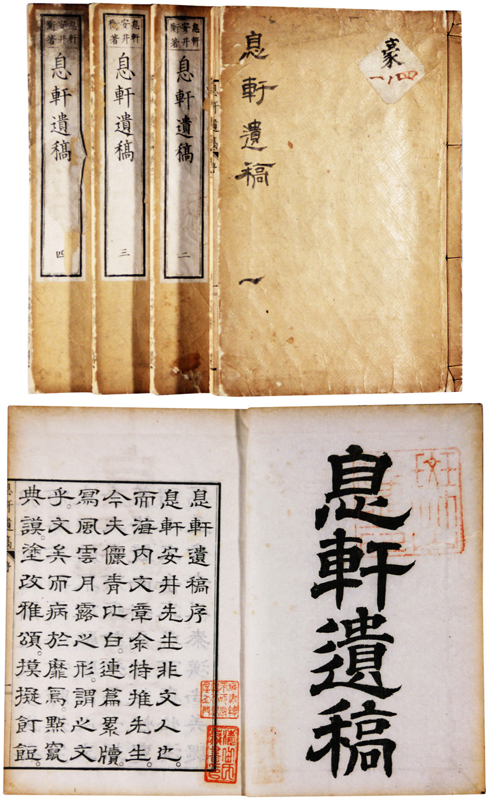 息軒遺稿
一
豪
息軒
安井
衡著
息軒遺稿
二
息軒
安井
衡著
息軒遺稿
三
息軒
安井
衡著
息軒遺稿
四
息軒遺稿
息軒遺稿序
息軒安井先生非文人也。
而海内文章余特推先生。
今夫儷青比白。連篇累牘。
寫風雲月露之形。謂之文
乎。文矣而病於靡焉。點竄
典謨。塗改雅頌。摸擬飣餖。